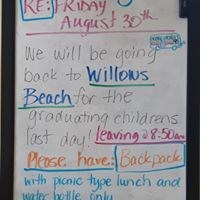 RE: FRIDAY
AUGUST 30th
We will be going
back to Willows
Beach for the
graduating childrens
last day! Leaving @ 8:50am
Please have: Backpack
with picnic type lunch and
water bottle only